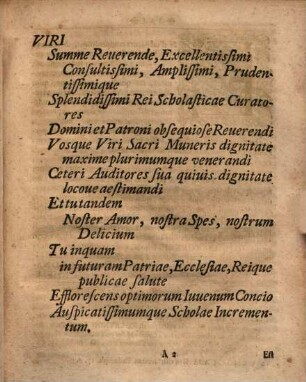 VIRI
Summe Reuerende, Excellentissimi
Consultissimi, Amplissimi, Pruden-
tissimique
Splendidissimi Rei Scholasticae Curato-
res
Domini et Patroni obsequiose Reuerendi
Vosque Viri Sacri Muneris dignitate
maxime plurimumque venerandi
Ceteri Auditores sua quiuis dignitate
locoue aestimandi
Et tutandem
Noster Amor, nostra Spes, nostrum
Delicium
Tu inquam
in futuram Patriae, Ecclesiae, Reique
publicae salute
Efflorescens optimorum Iuuenum Concio
Auspicatissimumque Scholae Incremen-
tum.
A 2 Est